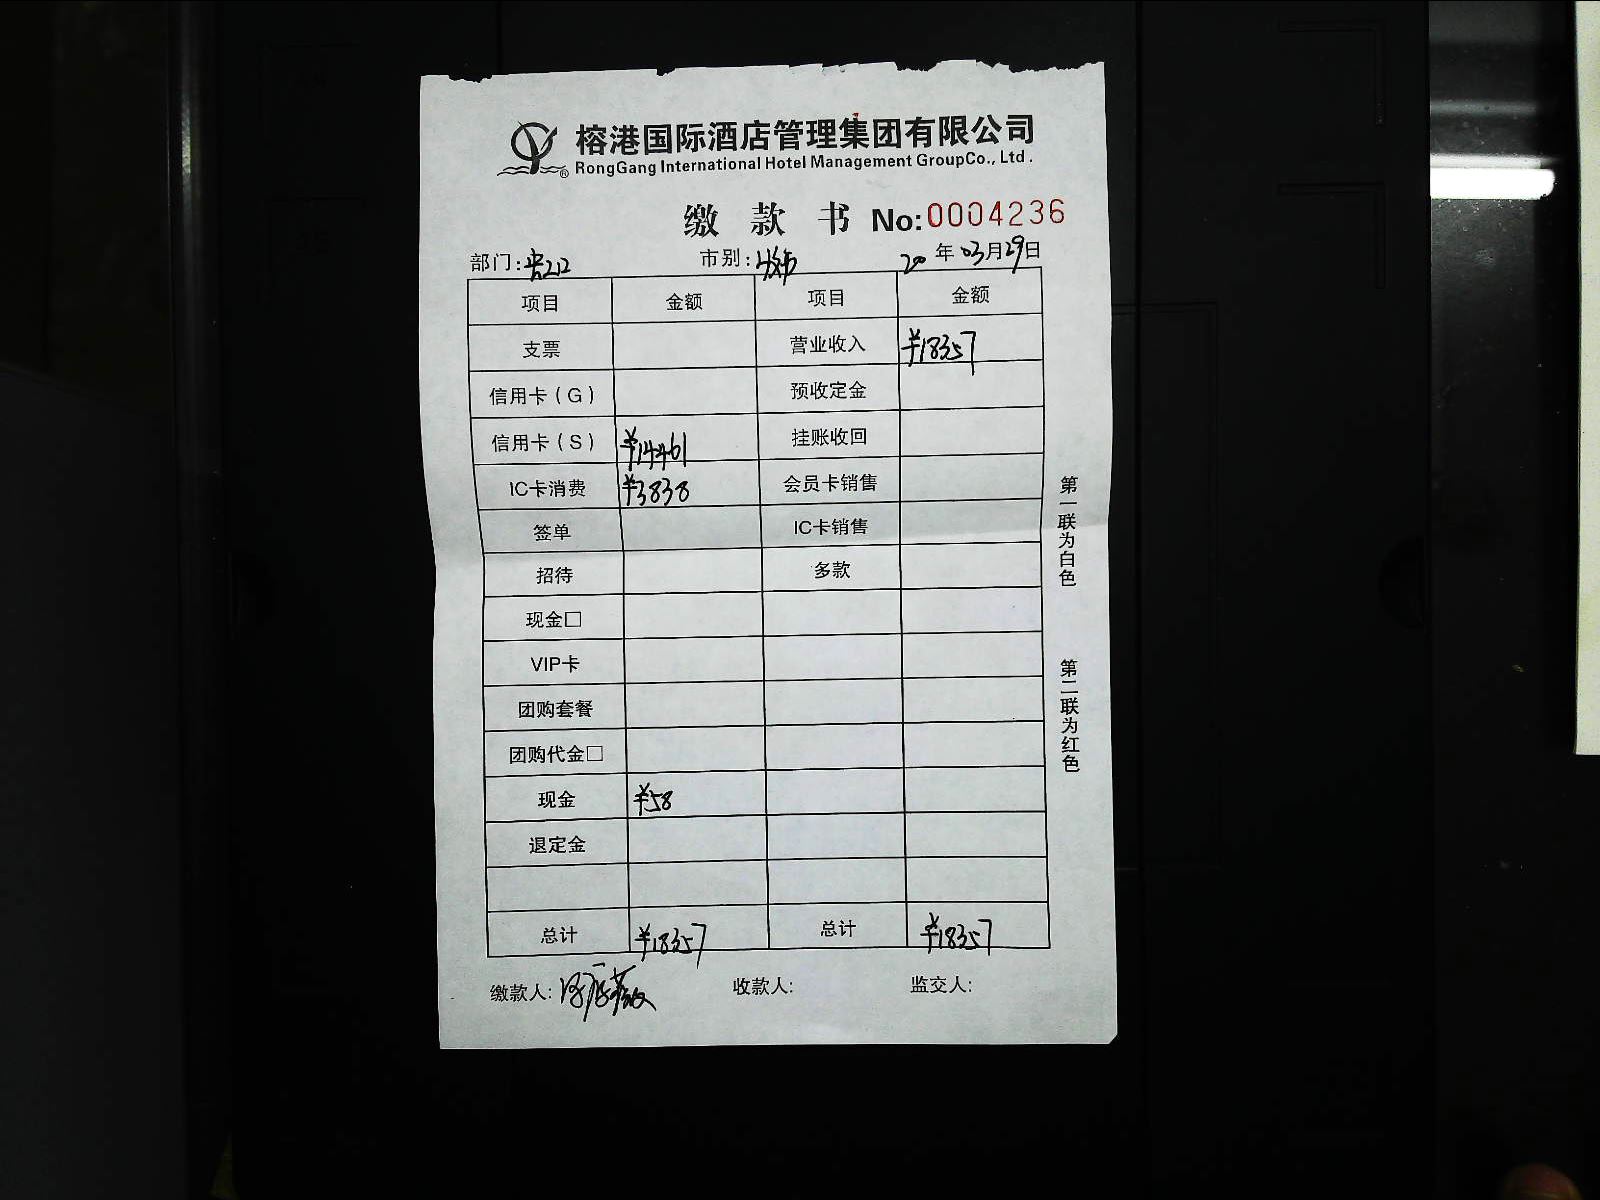 榕港国际酒店管理集团有限公司
RongGang International Hotel Management GroupCo., Ltd.
缴款书 No:0004236
部门: 市别: 20年03月29日
项目 金额 项目 金额
支票 营业收入 ¥18357
信用卡(G) 预收定金
信用卡(S) ¥14461 挂账收回
IC卡消费 ¥3838 会员卡销售
签单 IC卡销售
招待 多款
现金□
VIP卡
团购套餐
团购代金□
现金 ¥58
退定金
总计 ¥18357 总计 ¥18357
缴款人: 收款人: 监交人:
第一联为白色
第二联为红色